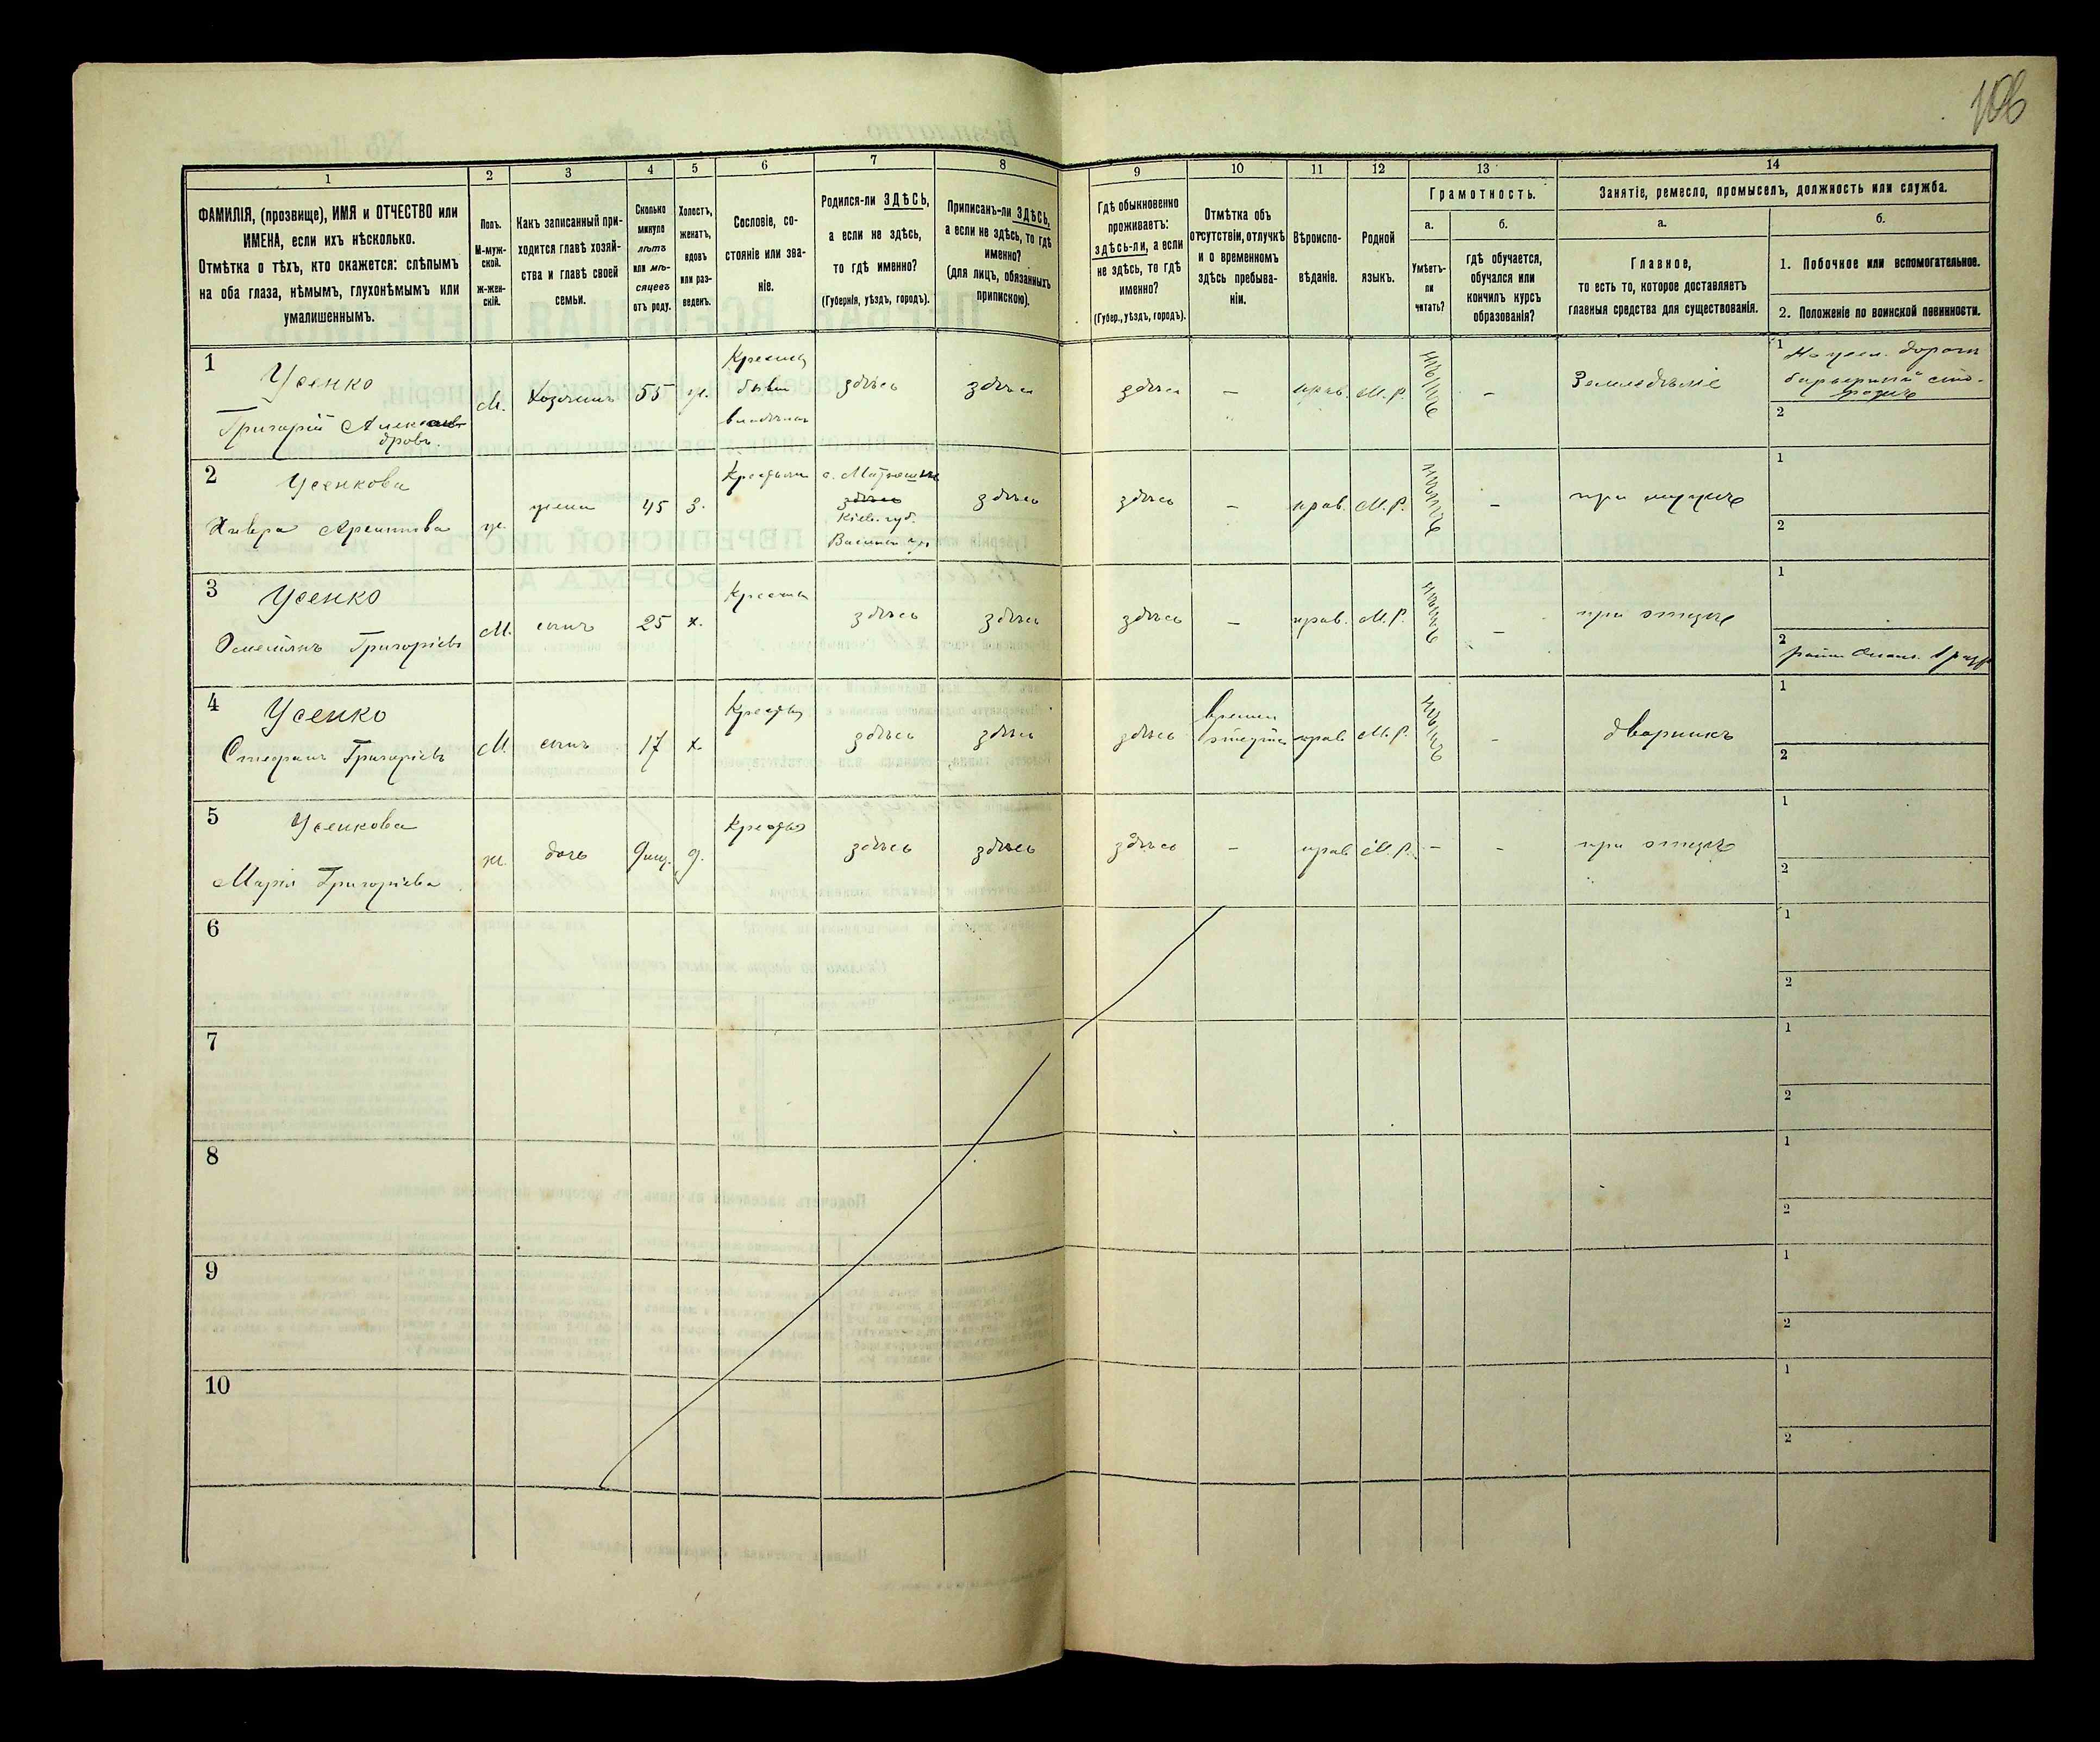 106
1
2
3
4
5
6
7
8
9
10
11
12
13
14
ФАМИЛІЯ, (прозвище), ИМЯ и ОТЧЕСТВО или
ИМЕНА, если ихъ нѣсколько.
Отмѣтка о тѣхъ, кто окажется: слѣпымъ
на оба глаза, нѣмымъ, глухонѣмымъ или
умалишеннымъ.
Полъ.
М-муж-
ской.
ж-жен-
скій.
Какъ записанный при-
ходится главѣ хозяй-
ства и главѣ своей
семьи.
Сколько
минуло
лѣтъ
или мѣ-
сяцевъ
отъ роду.
Холостъ,
женатъ,
вдовъ
или раз-
веденъ.
Сословіе, со-
стояніе или зва-
ніе.
Родился-ли ЗДѢСЬ,
а если не здѣсь,
то гдѣ именно?
(Губернія, уѣздъ, городъ).
Приписанъ-ли ЗДѢСЬ,
а если не здѣсь, то гдѣ
именно?
(для лицъ, обязанныхъ
припискою).
Гдѣ обыкновенно
проживаетъ:
здѣсь-ли, а если
не здѣсь, то гдѣ
именно?
(Губер., уѣздъ, городъ).
Отмѣтка объ
отсутствіи, отлучкѣ
и о временномъ
здѣсь пребыва-
ніи.
Вѣроиспо-
вѣданіе.
Родной
языкъ.
Грамотность.
а.
Умѣетъ-
ли
читать?
б.
гдѣ обучается,
обучался или
кончилъ курсъ
образованія?
Занятіе, ремесло, промыселъ, должность или служба.
а.
Главное,
то есть то, которое доставляетъ
главныя средства для существованія.
б.
1. Побочное или вспомогательное.
2. Положеніе по воинской повинности.
1
Усенко
Григорій Александровъ
М.
Хозяинъ
55
ж.
здѣсь
здѣсь
здѣсь
—
прав.
М. Р.
нѣтъ
-
Земледѣліе
1
2
2
Усенкова
ж.
жена
45
З.
с.
здѣсь
Кіев. губ.
здѣсь
здѣсь
—
прав.
М. Р.
-
при мужѣ
1
2
3
Усенко
Григоріевъ
М.
сынъ
25
х.
здѣсь
здѣсь
здѣсь
—
прав.
М. Р.
—
при отцѣ
1
2
4
Усенко
Стефанъ Григоріевъ
М.
сынъ
17
х.
здѣсь
здѣсь
здѣсь
прав.
М. Р.
-
дворникъ
1
2
5
Усенкова
Марія Григоріева
ж.
дочь
9 мѣс.
д.
здѣсь
здѣсь
здѣсь
—
прав.
М. Р.
—
-
при отцѣ
1
2
6
1
2
7
1
2
8
1
2
9
1
2
10
1
2